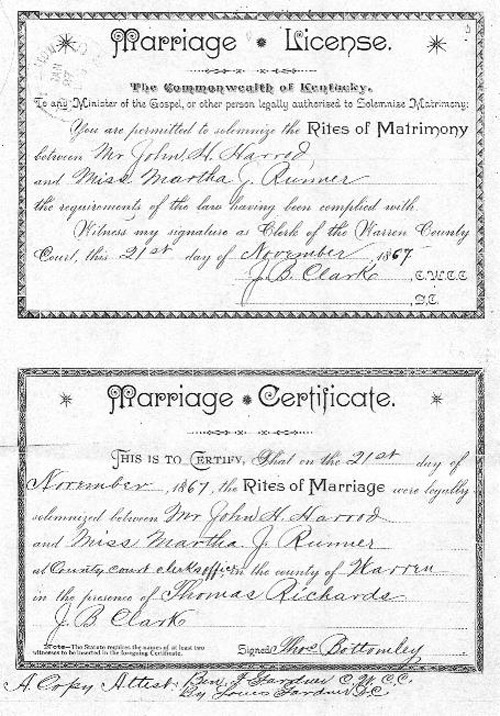 Marriage License.
The Commonwealth of Kentucky.
To any Minister of the Gospel, or other person legally authorised to Solemnise Matrimony:
You are permitted to solemnize the Rites of Matrimony
between Mr John H. Harrod
and Miss Martha J. Runner
the requirements of the law having been complied with.
Witness my signature as Clerk of the Warren County
Court, this 21st day of November 1867
J. B. Clark, C.W.C.C.
, D.C.
Marriage Certificate.
THIS IS TO CERTIFY, That on the 21st day of
November, 1867, the Rites of Marriage were legally
solemnized between Mr John H. Harrod
and Miss Martha J. Runner
at County court clerks office in the county of Warren
in the presence of Thomas Richards
J B Clark
Note—The Statute requires the names of at least two
witnesses to be inserted in the foregoing Certificate.
Signed Thos Bottomley
A Copy Attest: Ben. F Gardner C.W.C.C.
By Louis Gardner D.C.